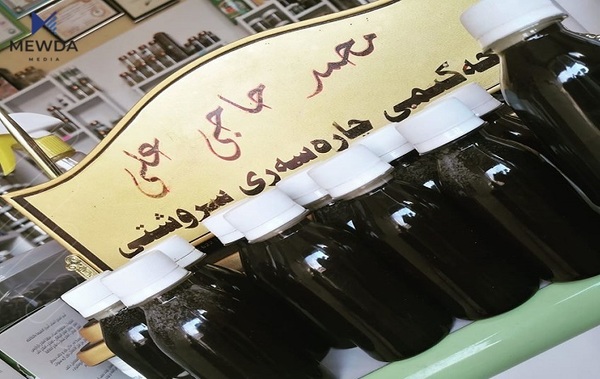 MEWDA
MEDIA
محمد حاجی علی
حەکیمی چارەسەری سروشتی